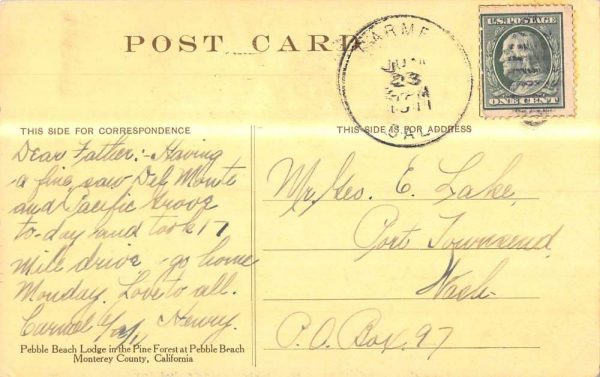 POST CARD
CARMEL
JUN
23
PM
1911
CAL
U.S. POSTAGE
ONE CENT
THIS SIDE FOR CORRESPONDENCE
Dear Father:- Having
a fine, saw Del Monte
and Pacific Grove
to-day and took 17
mile drive - go home
Monday. Love to all.
Carmel Henry.
Pebble Beach Lodge in the Pine Forest at Pebble Beach
Monterey County, California
THIS SIDE IS FOR ADDRESS
Mr. Geo. E. Lake,
Port Townsend
Wash-
P.O. Box. 97